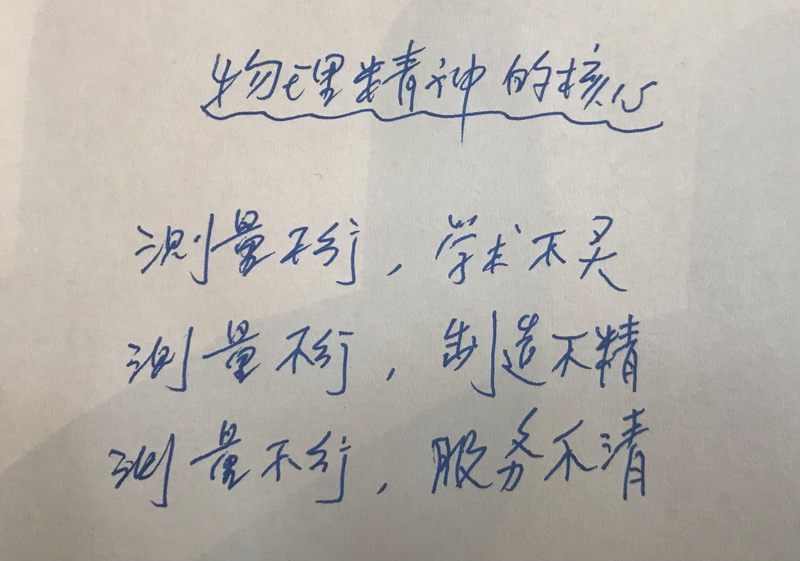 物理精神的核心
测量不行，学术不灵
测量不行，制造不精
测量不行，服务不清